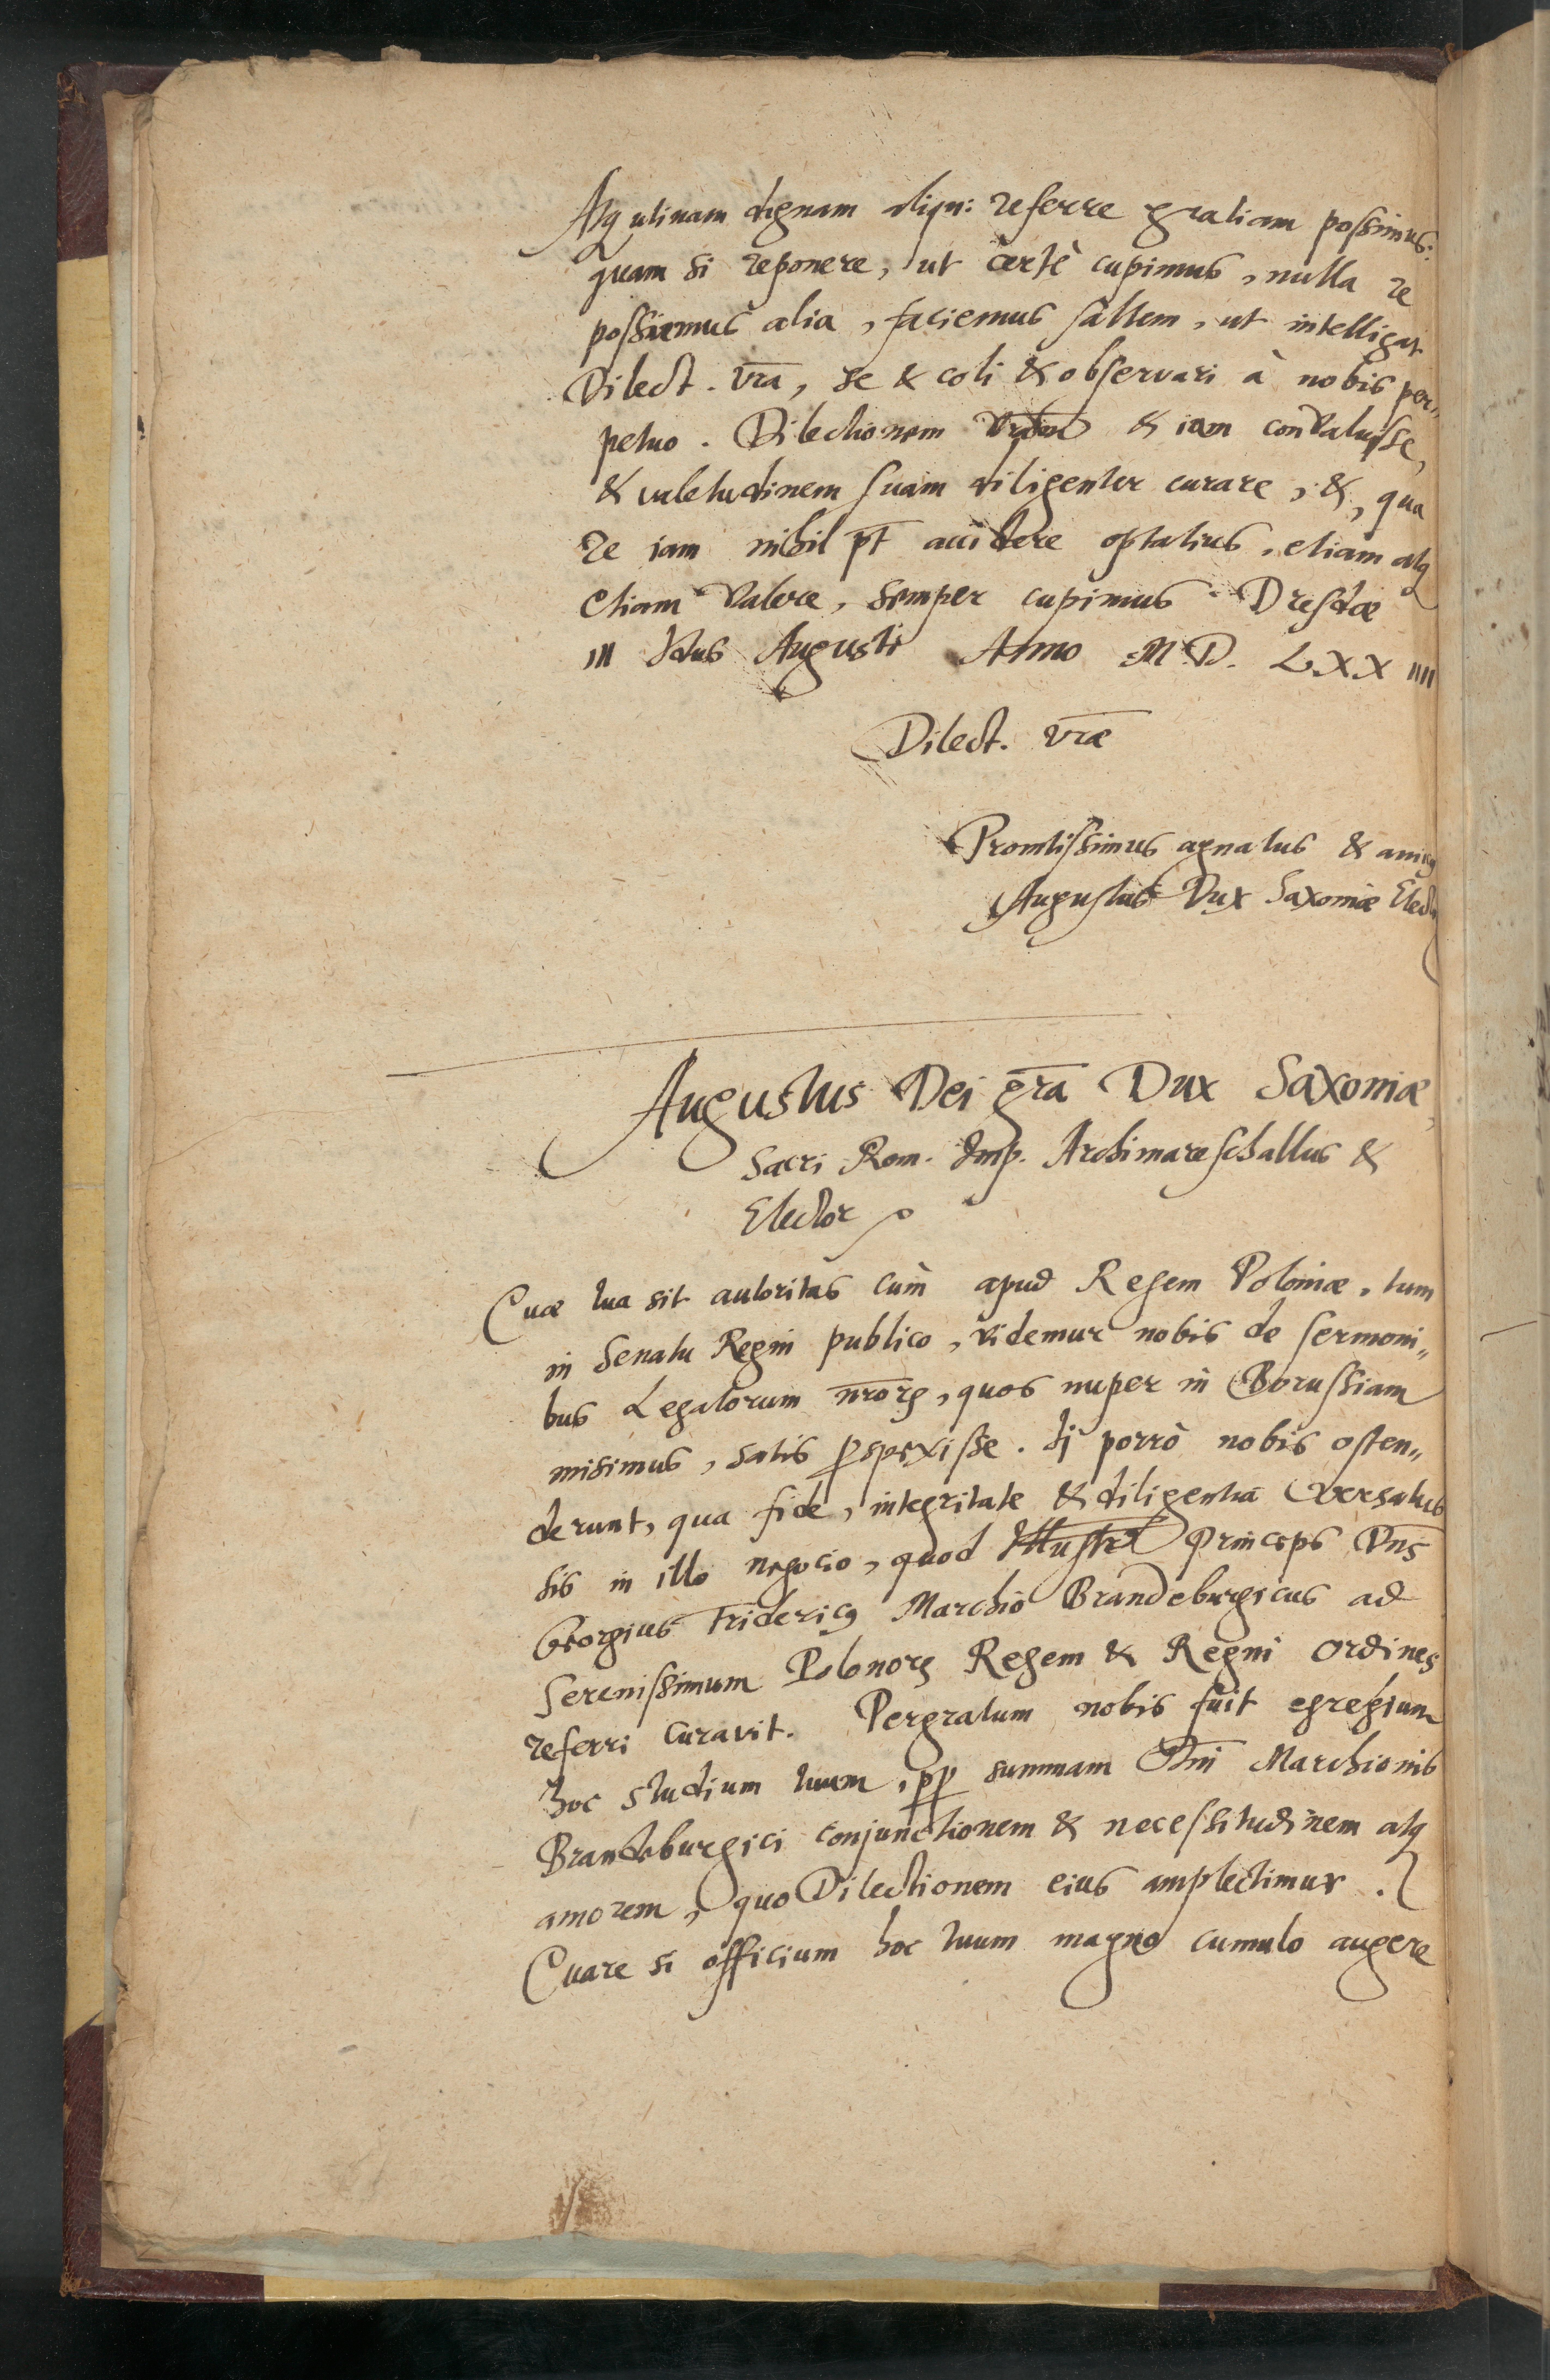 Atq utinam dignam aliqn: referre gratiam possimus:
quam si reponere, ut certè cupimus, nulla re
possimus alia, faciemus saltem, ut intelligat
Dilect. vra, se & coli & observari à nobis per„
petuo. Dilectionem & iam convaluisse,
& valetudinem suam diligenter curare, &, qua
re iam nihil pt accidere optatius, etiam atq
etiam valere, semper cupimus. Dresdæ
III Idus Augusti Anno M.D. LXX IIII
Dilect. vræ
Promtissimus agnatus & amicq
Augustus Dux Saxoniæ Elect
Augustus Dei gra Dux Saxoniæ,
Sacri Rom. Imp. Archimareschallus &
Elector
Quæ tua sit autoritas cùm apud Regem Poloniæ, tum
in Senatu Regni publico, videmur nobis de sermoni„
bus Legatorum nrorꝝ, quos nuper in Borussiam
misimus, satis ꝑspexisse. Ij porrò nobis osten„
derunt, qua fide, integritate & diligentia versatus
sis in illo negocio, quod Illustris Princeps Dns
Georgius Fridericq Marchio Brandeburgicus ad
Serenissimum Polonorꝝ Regem & Regni Ordines
referri curavit. Pergratum nobis fuit egregium
hoc studium tuum, ꝓp summam Dni Marchionis
Brandeburgici conjunctionem & necessitudinem atq
amorem, quo Dilectionem eius amplectimur.
Quare si officium hoc tuum magno cumulo augere